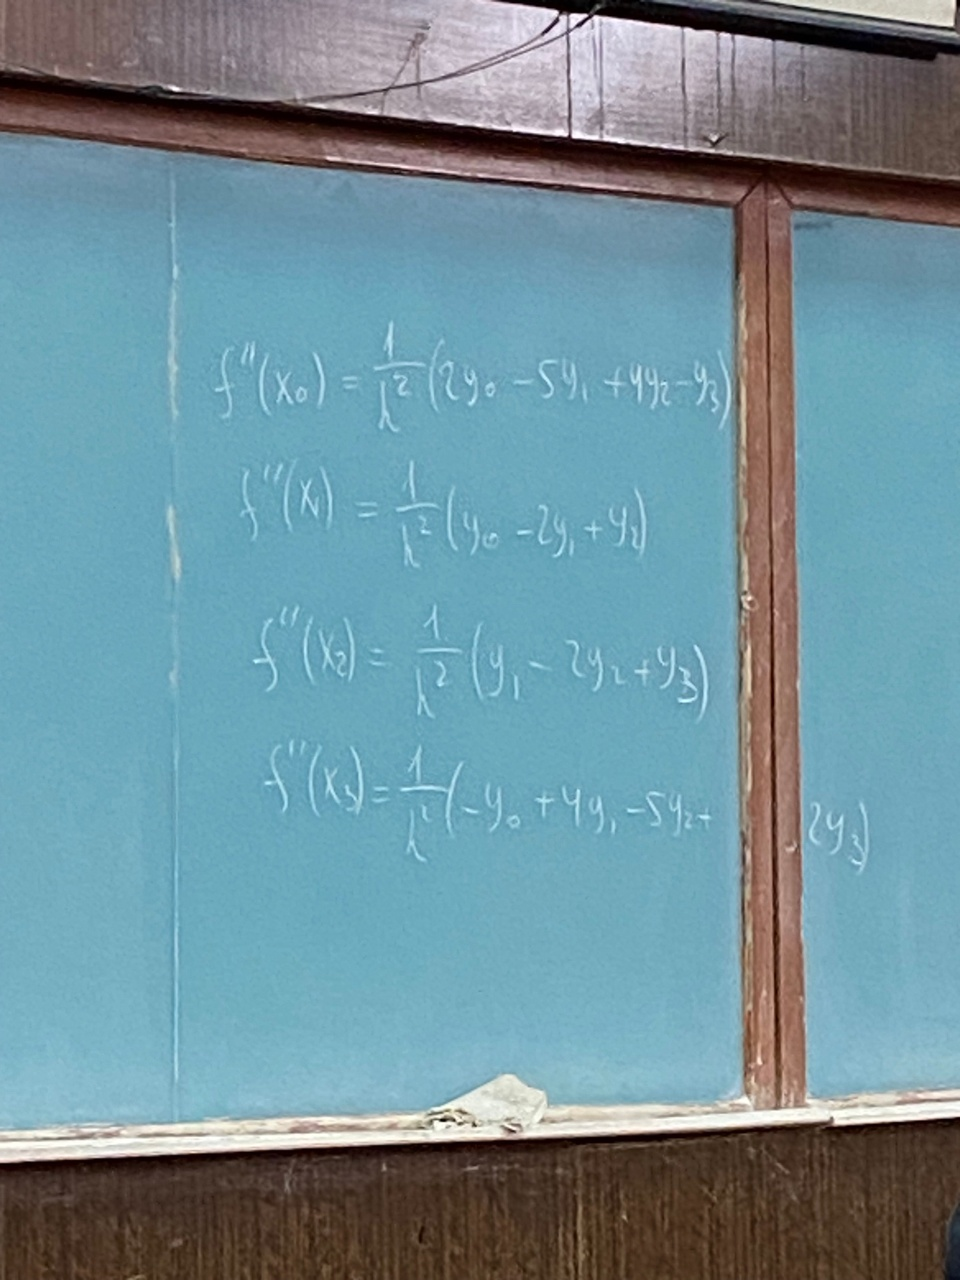 f''(x₀) = 1/h² (2y₀ - 5y₁ + 4y₂ - y₃)
f''(x₁) = 1/h² (y₀ - 2y₁ + y₂)
f''(x₂) = 1/h² (y₁ - 2y₂ + y₃)
f''(x₃) = 1/h² (-y₀ + 4y₁ - 5y₂ + 2y₃)